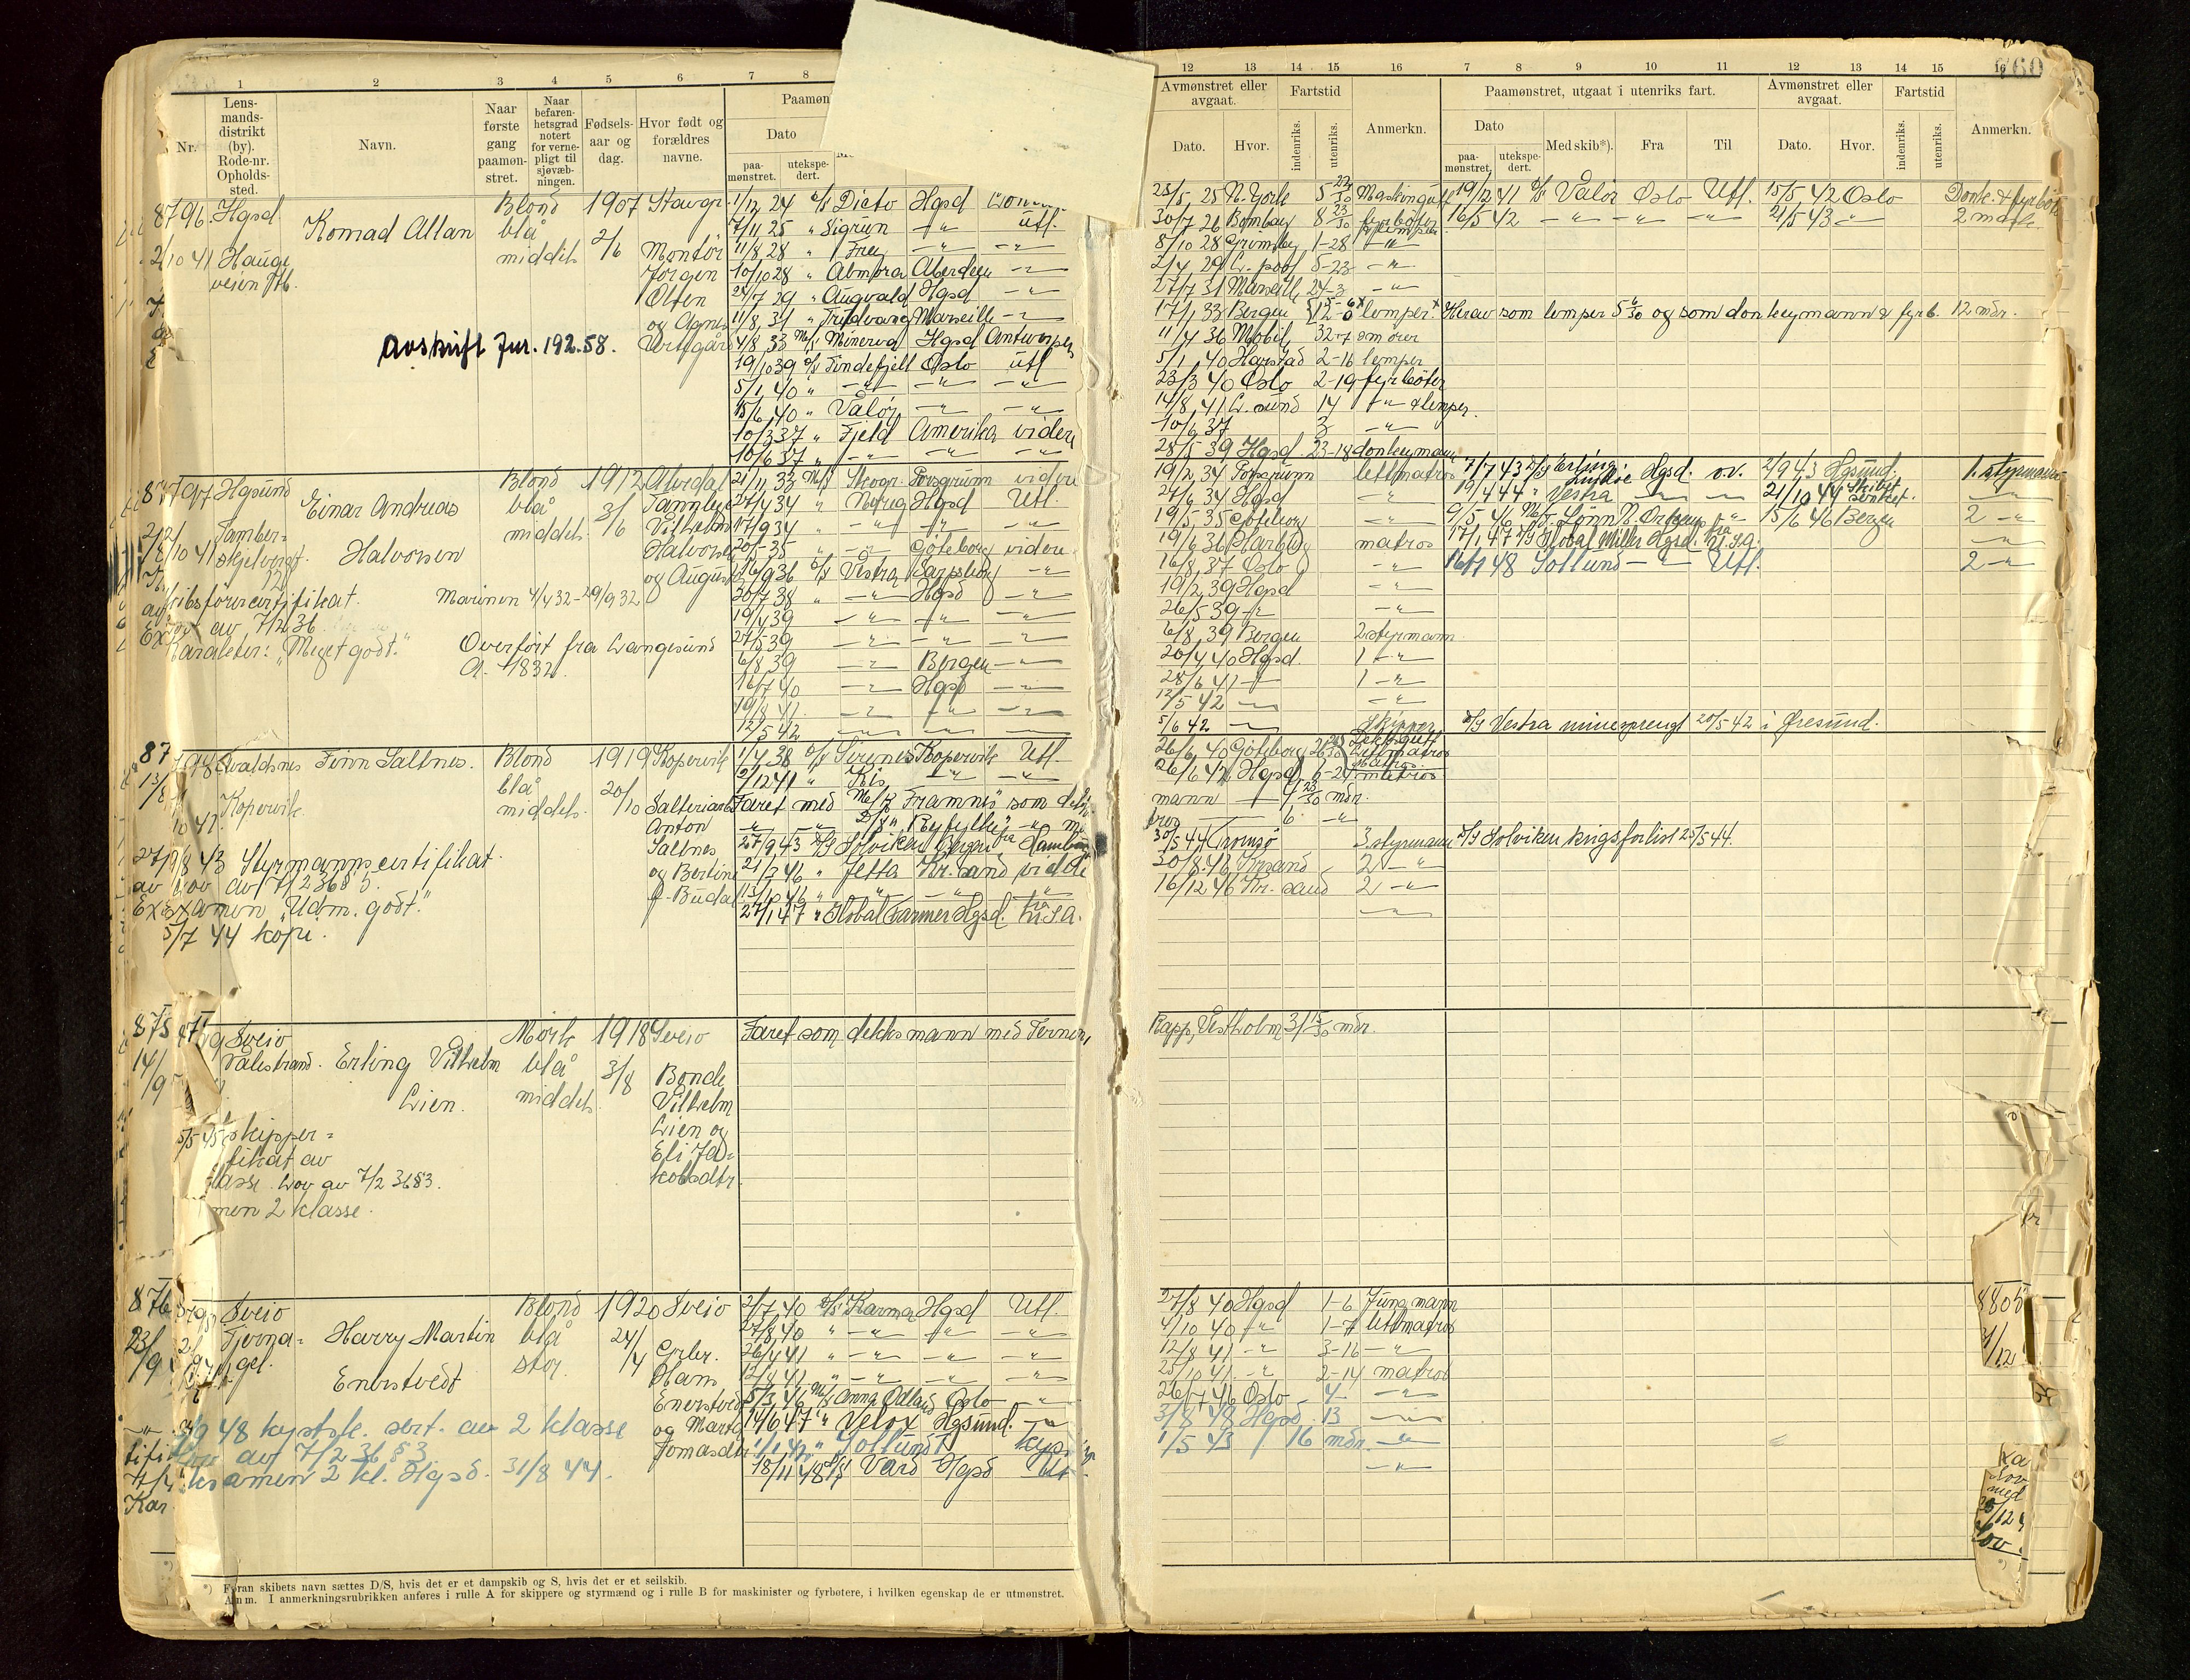 1 2 3 4 5 6 7 8
Lens-
mands-
distrikt
(by).
Rode-nr.
Opholds-
sted.
Nr.
Navn.
Naar
første
gang
paamøn-
stret.
Naar
befaren-
hetsgrad
notert
for verne-
pligt til
sjøvæb-
ningen.
Fødsels-
aar og
dag.
Hvor født og
forældres
navne.
Paamøn
Dato
paa-
mønstret.
utekspe-
dert.
8796 Hgsd. Konrad Allan Blond 1907 Stavgr.
blå 2/6
middels Montør
2/10 41 Hauge
veien
Jørgen
Olsen
og Agnes
Avskrift Jur. 192.58.
1/12 24 D/S Dicto Hgsd
7/11 25 " Sigrun -"- Utl.
11/8 28 " Frey -"- -"-
10/10 28 " Almora Aberdeen -"-
24/7 29 " Augvald Hgsd -"-
11/8 31 " Tridvang Marseille -"-
4/8 33 M/S Minerva Hgsd Antwerpen
19/10 39 D/S Tindefjell Oslo Utl
5/1 40 " -"- -"- -"-
15/6 40 " Valør -"- -"-
10/3 37 " Fjeld Amerika videre
10/6 37 " -"- -"- -"-
8797 Hgsund Einar Andreas Halvorsen
Blond 1912 Alvedal
blå 3/6
middels
Vilhelm
Halvorsen
og August
Marinen 4/4 32 - 29/9 32
av 7/2 36
Karakter: "Meget godt." Overført fra Langesund
A. 1832.
21/11 33 M/S Skogr. Porsgrunn videre
27/4 34 " Norig Hgsd Utl.
17/9 34 " -"- -"- -"-
20/5 35 " -"- Göteborg videre
16/9 36 D/S Vestra Sarpsborg -"-
20/7 38 " -"- Hgsd -"-
19/4 39 -"- -"- -"-
27/5 39 -"- -"- -"-
6/8 39 -"- Bergen -"-
16/7 40 -"- Hgsd -"-
19/8 41 -"- -"- -"-
12/5 42 -"- -"- -"-
8798 Avaldsnes Finn Saltnes. Blond 1919 Kopervik
Kopervik
blå 20/10
middels
Anton
Saltnes
og Bertine
f. Budal
27/8 43 Styrmannscertifikat
av lov av 7/2 36 § 5.
Examen "Udm. godt."
5/7 44 kopi.
1/4 38 D/S Sirenes Kopervik Utl.
2/12 41 " Kis -"- -"-
Faret med M/K Framnes som deks
-"- -"- D/S " Ryfylke" -"- M
27/9 43 D/S Solviken Bergen fra Hamburg
21/3 46 " Jetta Kr.sand videre
13/10 46 " -"- -"- -"-
27/1 47 " Global Farmer Hgsd. fra U.S.A.
8799 Sveio
Valestrand. Erling Vilhelm Lien.
Mørk 1918 Sveio
blå 3/8 Bonde
middels. Vilhelm
Lien og
Eli Ja-
kobsdtr.
14/9
5/5 45 skipper-
fikat av
lasse. Lov av 7/2 36 § 3.
men 2 klasse.
Faret som dekksmann med Ternen,
Sveio
Tjerna-
gel.
Harry Martin
Enerstvedt
Blond 1920 Sveio
blå 24/4
stor.
Hans
Enerstvedt
og Marta
Tomasdtr
23/9
48 kystsk. sert. av 2 klasse
av 7/2 36 § 3
Examen 2 kl. Hgsd. 31/8 44.
2/7 40 D/S Karma Hgsd Utl.
27/8 40 " -"- -"- -"-
26/4 41 " -"- -"- -"-
12/8 41 -"- -"- -"-
5/3 46 M/S Anna Odland Oslo -"-
14/6 47 " Velox Hgsund. -"-
1/1 42 " Sollund
18/11 48 D/S Vard Hgsd Ut
*) Foran skibets navn sættes D/S, hvis det er et dampskib og S, hvis det er et seilskib.
Anm. I anmerkningsrubrikken anføres i rulle A for skippere og styrmænd og i rulle B for maskinister og fyrbøtere, i hvilken egenskap de er utmønstret.
12 13 14 15 16 7 8 9 10 11 12 13 14 15 16
Avmønstret eller
avgaat.
Fartstid
Dato. Hvor.
indenriks.
utenriks.
Anmerkn.
Paamønstret, utgaat i utenriks fart.
Dato
paa-
mønstret.
utekspe-
dert.
Med skib*). Fra Til
Avmønstret eller
avgaat.
Dato. Hvor.
Fartstid
indenriks.
utenriks.
Anmerkn.
28/5 25 N. York 5 22/30 Maskingutt 19/12 41 D/S Valør Oslo Utl. 15/5 42 Oslo Donk. & fyrbøter
30/7 26 Bombay 8 23/30 16/5 42 -"- -"- -"- 21/5 43 -"- 2 mask.
8/10 28 Grimsby 1-28 -"-
2/4 29 L.pool 5-23 -"-
27/7 31 Marseille 24-3 -"-
17/1 33 Bergen lemper. x Herav som lemper 5 6/30 og som donkeymann & fyrb. 12 mdr.
11/4 36 Mobil 32-7 smører
5/1 40 Harstad 2-16 lemper
23/3 40 Oslo 2-19 fyrbøter
14/8 41 L.sund 14 -"- & lemper.
10/6 37 3 -"-
28/5 39 Hgsd. 23-18 donkeymann
19/2 34 Porsgrunn lettmatros 7/7 43 D/S Erling Lindøe Hgsd. o.v. 2/9 43 Hgsund. 1. styrmann
27/6 34 Hgsd -"- 19/4 44 " Vestra -"- -"- 21/10 44 Skibet senket. -"-
19/5 35 Göteborg -"- 9/5 46 M/S Lønn -"- 15/6 46 Bergen 2 -"-
19/6 36 Harburg matros 17/1 47 D/S Global Miller Hgsd. fra U.S.A. -"-
16/8 37 Oslo -"- 16/1 48 Sollund -"- Utl. 2 -"-
19/2 39 Hgsd -"-
26/5 39 -"- -"-
6/8 39 Bergen 2 styrmann
20/4 40 Hgsd. 1 -"-
28/6 41 -"- 1 -"-
12/5 42 -"- -"-
5/6 42 -"- Skipper D/S Vestra minesprengt 20/5 42 i Øresund.
26/6 40 Göteborg Dekksgutt lettmatros
26/6 42 Hgsd 6-24 matros
mann -"- 9 23/30 mdr.
tros -"- 6 -"-
30/5 44 Tromsø 3 styrmann D/S Solviken krigsforlist 25/5 44.
30/8 46 Kr.sand 2 -"-
16/12 46 Kr. sand 2 -"-
-"-
Rapp, Vestholm 3 15/30 mdr.
27/8 40 Hgsd 1-6 Jungmann
4/10 40 -"- 1-7 lettmatros
12/8 41 -"- 3-16 -"-
25/10 41 -"- 2-14 matros
26/7 46 Oslo 4 -"-
3/8 48 Hgsd 13 -"-
1/5 43 16 mdr. -"-
-"-
8805